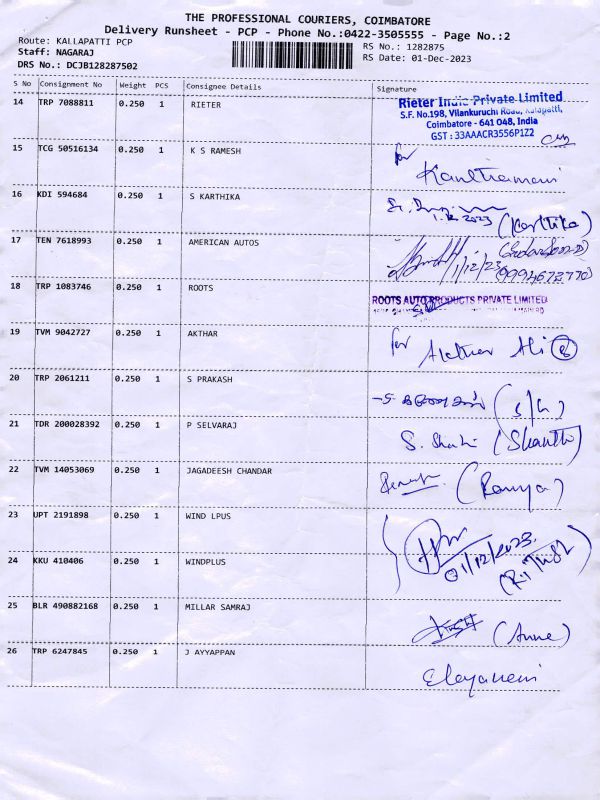 THE PROFESSIONAL COURIERS, COIMBATORE
Delivery Runsheet - PCP - Phone No.:0422-3505555 - Page No.:2
Route: KALLAPATTI PCP
Staff: NAGARAJ
DRS No.: DCJB128287502
RS No.: 1282875
RS Date: 01-Dec-2023
S No Consignment No Weight PCS Consignee Details Signature
14 TRP 7088811 0.250 1 RIETER
Rieter India Private Limited
S.F. No.198, Vilankuruchi Road, Kalapatti,
Coimbatore - 641 048, India
GST : 33AAACR3556P1Z2
15 TCG 50516134 0.250 1 K S RAMESH for
16 KDI 594684 0.250 1 S KARTHIKA 1.12.2023 (Karthika)
17 TEN 7618993 0.250 1 AMERICAN AUTOS 1/12/23
9994672770)
18 TRP 1083746 0.250 1 ROOTS ROOTS AUTO PRODUCTS PRIVATE LIMITED
19 TVM 9042727 0.250 1 AKTHAR for Ali
20 TRP 2061211 0.250 1 S PRAKASH
21 TDR 200028392 0.250 1 P SELVARAJ (Shanthi)
22 TVM 14053069 0.250 1 JAGADEESH CHANDAR (Ramya)
23 UPT 2191898 0.250 1 WIND LPUS 01/12/2023.
24 KKU 410406 0.250 1 WINDPLUS
25 BLR 490882168 0.250 1 MILLAR SAMRAJ (Anne)
26 TRP 6247845 0.250 1 J AYYAPPAN